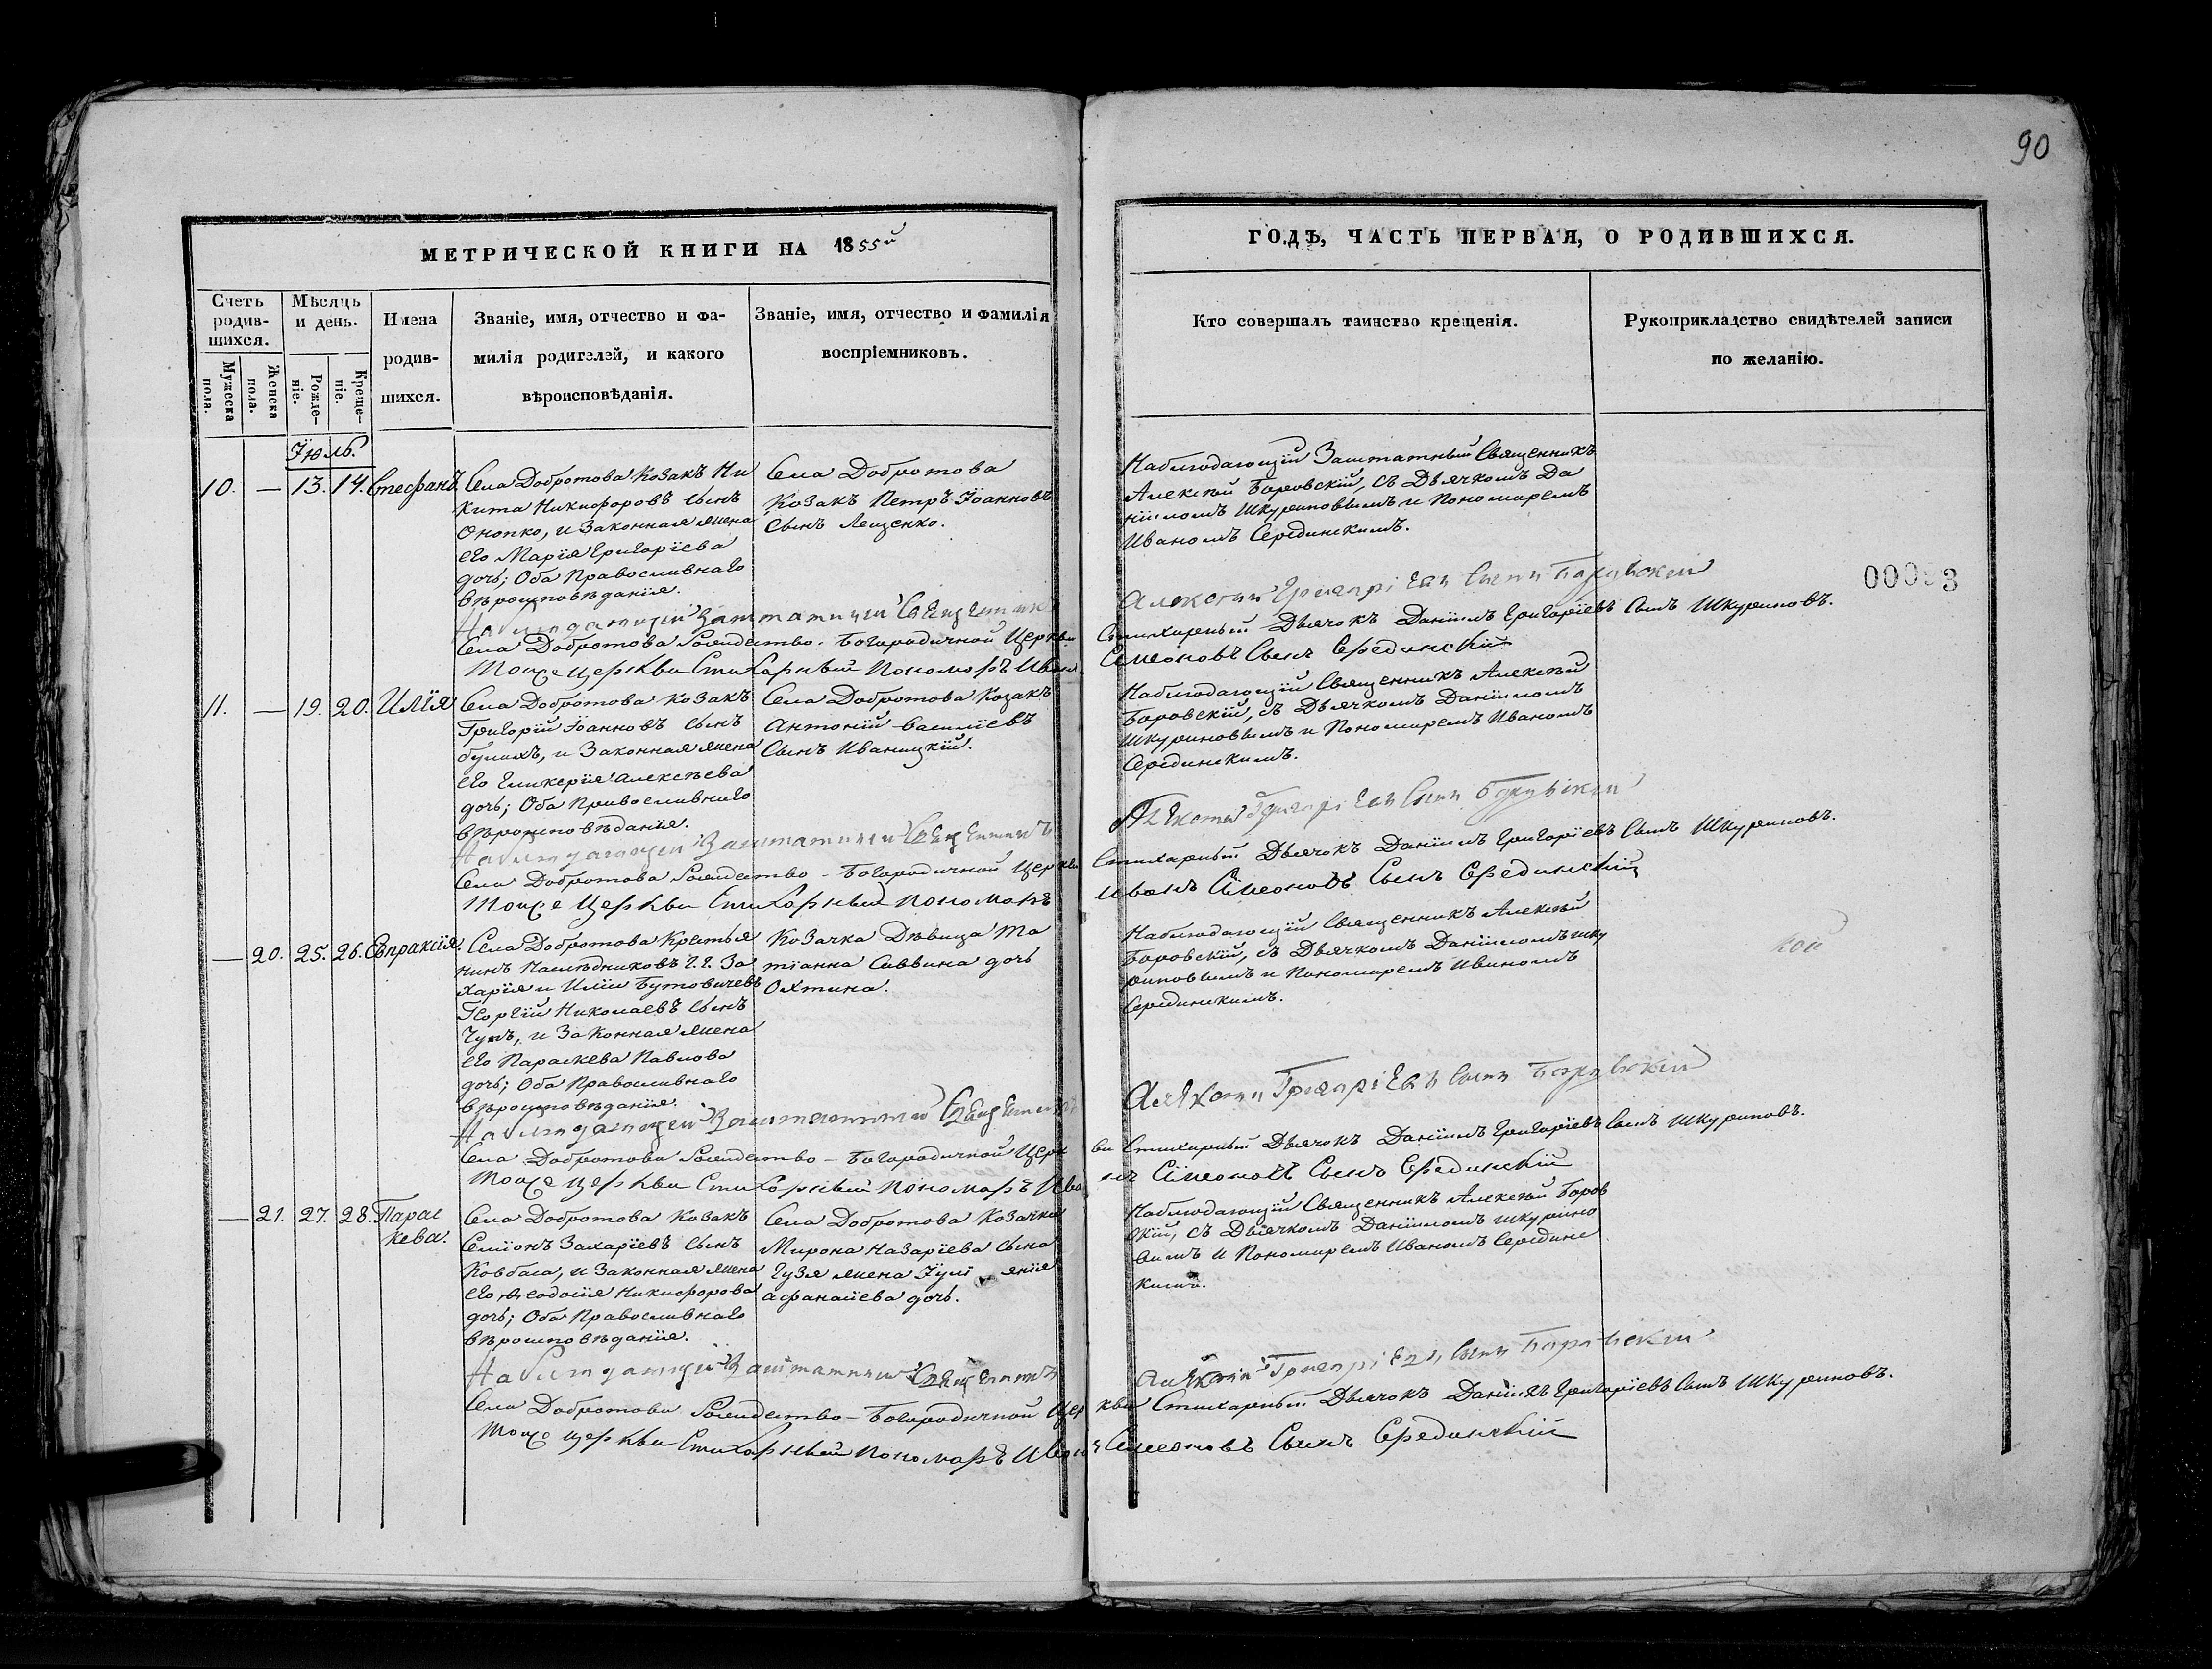 90
МЕТРИЧЕСКОЙ КНИГИ НА 1855й
Счетъ родив-шихся.
Мужеска пола.
Женска пола.
Мѣсяцъ и день.
Рожде-ніе.
Креще-ніе.
Имена
родив-
шихся.
Званіе, имя, отчество и фа-
милія родителей, и какого
вѣроисповѣданія.
Званіе, имя, отчество и фамилія
воспріемниковъ.
Іюль.
10. — 13. 14. Стефанъ.
Села Добротова Козакъ Ни
кита Никифоровъ сынъ
Онопко, и Законная жена
его Марія Григоріева
дочь; Оба Православнаго
вѣроисповѣданія.
Села Добротова
Козакъ Петръ Іоанновъ
Сынъ Лещенко.
Наблюдающій Заштатный Священникъ
Села Добротова Рождество-Богородичной Церкви
Тоиже церкви Стихарный Пономаръ Иванъ
11. — 19. 20. Илія
Села Добротова Козакъ
Григорій Іоанновъ сынъ
его Гликерія Алексѣева
дочь; Оба Православнаго
вѣроисповѣданія.
Села Добротова Козакъ
Антоній Василіевъ
Сынъ Иваницкій.
Наблюдающій Заштатный Священникъ
Села Добротова Рождество-Богородичной Церкви
Тоиже Церкви Стихарный Пономаръ
— 20. 25. 26. Євпраксія.
Села Добротова Крестья
нинъ Наслѣдниковъ Г.Г. За
харія и Иліи Бутовичевъ
Георгій Николаевъ сынъ
и Законная жена
его Параскева Павлова
дочь; Оба Православнаго
вѣроисповѣданія.
Козачка Дѣвица Та
тіанна Саввина дочь
Охтина.
Наблюдающій Заштатный Священникъ
Села Добротова Рождество-Богородичной Церк
Тоиже церкви Стихарный Пономаръ Ива
— 21. 27. 28. Парас
кева.
Села Добротова Козакъ
Семіонъ Захаріевъ сынъ
Ковбаса, и Законная жена
его Ѳеодосія Никифорова
дочь; Оба Православнаго
вѣроисповѣданія.
Села Добротова Козачка
Мирона Назаріева сына
Гузя жена Іулі анія
Афанасіева дочь.
Наблюдающій Заштатный Священникъ
Села Добротова Рождество-Богородичной Цер
Тоиже церкви Стихарный Пономаръ Иванъ
ГОДЪ, ЧАСТЬ ПЕРВАЯ, О РОДИВШИХСЯ.
Кто совершалъ таинство крещенія.
Рукоприкладство свидѣтелей записи
по желанію.
Наблюдающій Заштатный Священникъ
Алексѣй Боровскій, съ Дьячкомъ Да
ніиломъ Шкуриновымъ и Пономаремъ
Иваномъ Серединскимъ.
Алексѣй Григоріевъ Сынъ Боровскій
Стихарный Дьячокъ Даніилъ Григоріевъ Сынъ Шкуриновъ.
Симеоновъ Сынъ Серединскій
Наблюдающій Священникъ Алексѣй
Боровскій, съ Дьячкомъ Даніиломъ
Шкуриновымъ и Пономаремъ Иваномъ
Серединскимъ.
Алексѣй Григоріевъ Сынъ Боровскій
Стихарный Дьячокъ Даніилъ Григоріевъ Сынъ Шкуриновъ.
Иванъ Симеоновъ Сынъ Серединскій
Наблюдающій Священникъ Алексѣй
Боровскій, съ Дьячкомъ Даніиломъ Шку
риновымъ и Пономаремъ Иваномъ
Серединскимъ.
Алексѣй Григоріевъ Сынъ Боровскій
ви Стихарный Дьячокъ Даніилъ Григоріевъ Сынъ Шкуриновъ.
нъ Симеоновъ Сынъ Серединскій
Наблюдающій Священникъ Алексѣй Боров
скій, съ Дьячкомъ Даніиломъ Шкурино
вымъ и Пономаремъ Иваномъ Серединс
кимъ.
Алексѣй Григоріевъ Сынъ Боровскій
кви Стихарный Дьячокъ Даніилъ Григоріевъ Сынъ Шкуриновъ.
Симеоновъ Сынъ Серединскій
кой